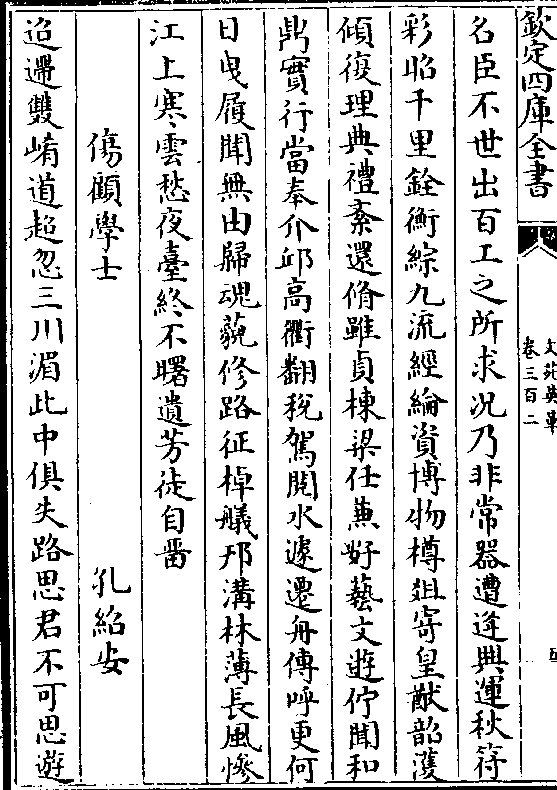 欽定四庫全書
文苑英華
卷三百二
名臣不世出百工之所求况乃非常器遭逢興運秋符
彩昭千里銓衡綜九流經綸資博物樽爼寄皇猷韶濩
傾復理典禮紊還脩雖貞棟梁任兼好藝文遊佇聞和
鼎實行當奉介邱高衢翻稅駕閱水遽遷舟傳呼更何
日曳履聞無由歸魂藐修路征棹艤邗溝林薄長風慘
江上寒雲愁夜臺終不曙遺芳徒自畱
傷顧學士
孔紹安
迢遰雙崤道超忽三川湄此中俱失路思君不可思遊